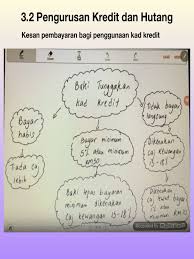 3.2 Pengurusan Kredit dan Hutang
Kesan pembayaran bagi penggunaan kad kredit
Baki Tunggakan
kad kredit
Bayar
habis
Tiada caj
lebih
Bayar minimum
5% atau minimum
RM50
Baki lepas bayaran
minimum dikenakan
caj kewangan
Tidak bayar
langsung
Dikenakan
caj kewangan
Dikenakan
caj lewat bayar